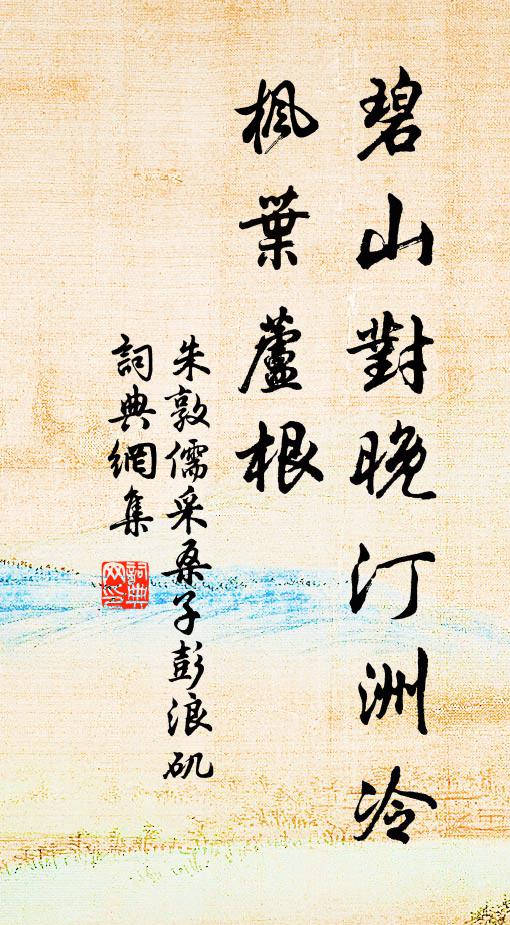 碧山對晚汀洲冷
枫葉蘆根
朱敦儒采桑子彭浪矶
詞典網集
詞典
网